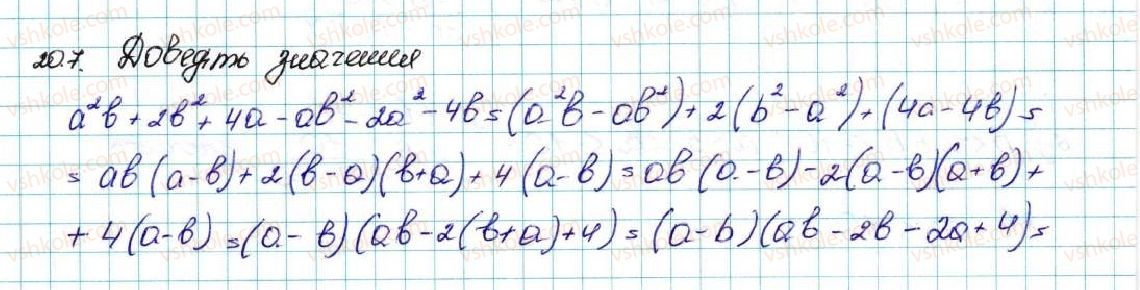 20.7. Доведіть значення
a²b + 2b² + 4a - ab² - 2a² - 4b = (a²b - ab²) + 2(b² - a²) + (4a - 4b) =
= ab(a-b) + 2(b-a)(b+a) + 4(a-b) = ab(a-b) - 2(a-b)(a+b) +
+ 4(a-b) = (a-b)(ab - 2(b+a) + 4) = (a-b)(ab - 2b - 2a + 4) =
vshkole.com